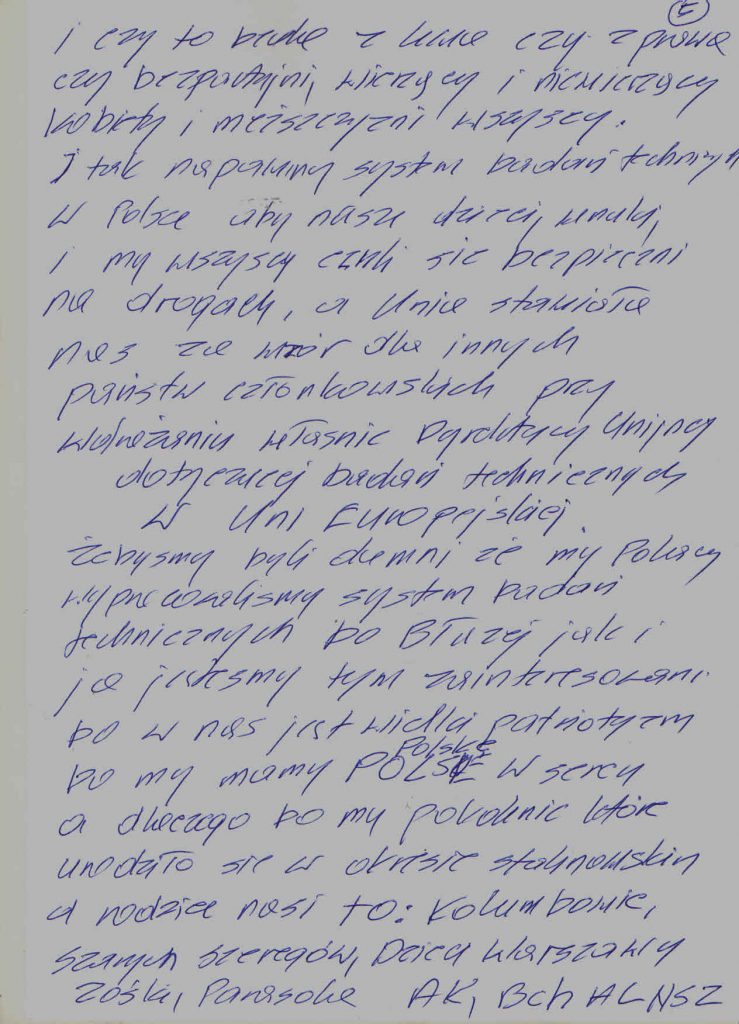 E
i czy to będę z lewa czy z prawa
czy bezpartyjni, wierzący i niewierzący
kobiety i męiszczyzni wszyszy.
I tak napawimy system badań technicznych
w Polsce aby nasze dzieci, wnuki,
i my wszyscy czuli się bezpieczni
na drogach, a Unia stawiała
nas za wzór dla innych
państw członkowskich przy
wdrażaniu właśnie Dyrektywy Unijnej
dotyczącej badań technicznych
w Uni Europejskiej
Żebysmy byli dumni że my Polacy
wypracowalismy system badań
technicznych bo Błużej jak i
ja jestesmy tym zainteresowani.
bo w nas jest wielki patriotyzm
Polskę
bo my mamy w sercu
a dlaczego bo my pokolenie które
urodziło się w okresie stalinowskim
a rodzice nasi to: Kolumbowie,
Szarych szeregów, Dzieci Warszawy
Zośki, Parasola AK, Bch AL NSZ